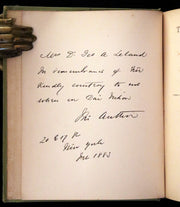 Mrs D. Geo A Leland
In remembrance of her
kindly courtesy to me
when in Dai Nihon
The Author
20 E 17
New York
1883